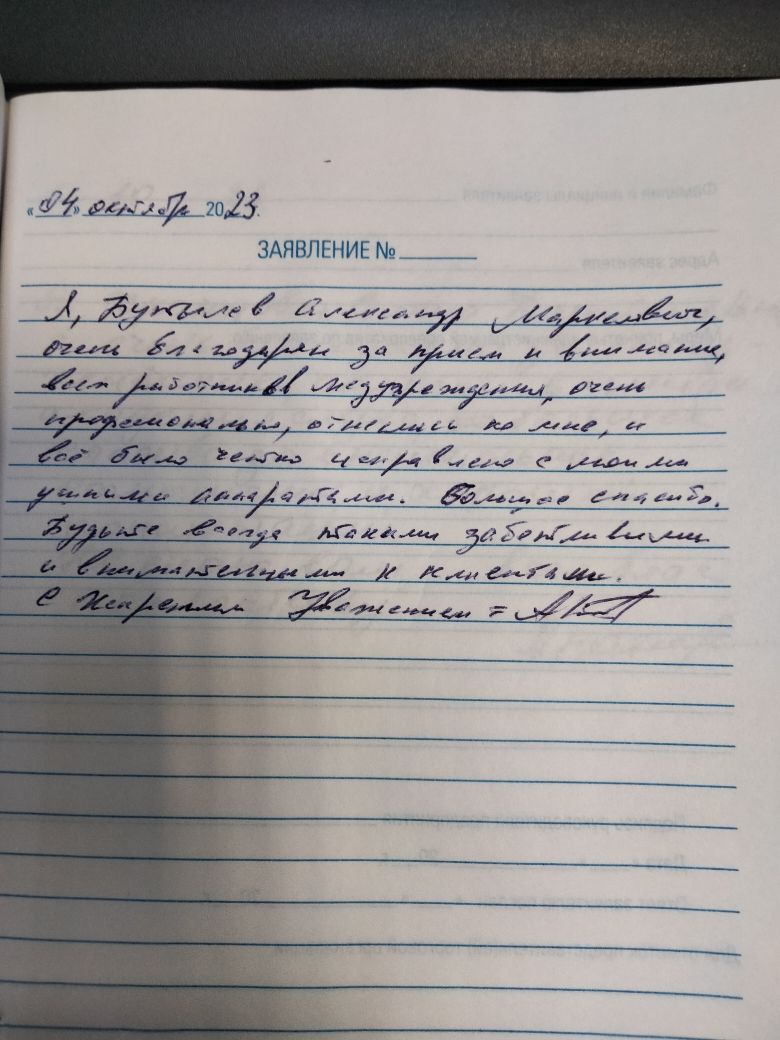 «04» октябр 2023.
ЗАЯВЛЕНИЕ №
Я, Бутылев Александр Маркелович,
очень благодарен за прием и внимание,
всех работников медучреждения, очень
професионально, отнеслись ко мне, и
всё было четко исправлено с моими
ушными аппаратами. Большое спасибо.
Будьте всегда такими заботливыми
и внимательными к клиентами.
С Уважением =